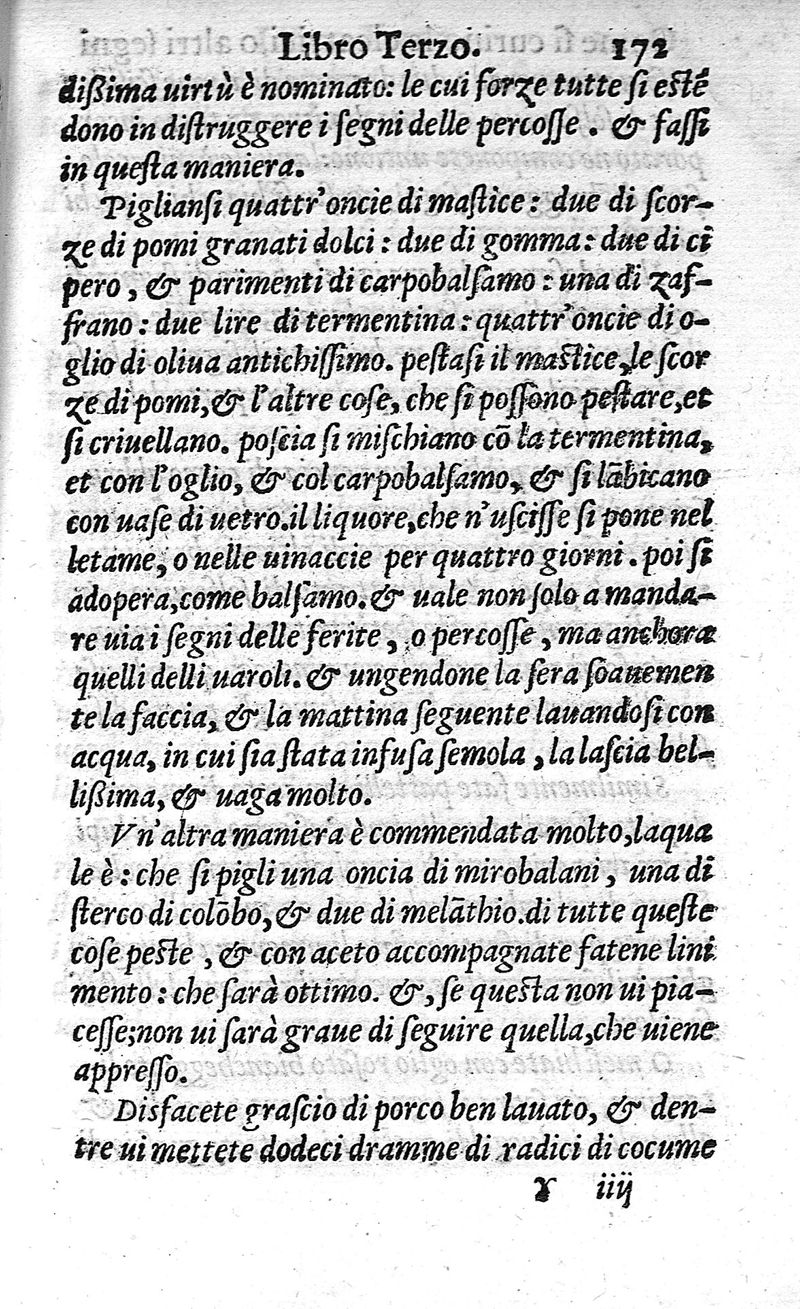 Libro Terzo. 172
dißima uirtù è nominato: le cui forze tutte si estē
dono in distruggere i segni delle percosse. & fassi
in questa maniera.
Pigliansi quattr'oncie di mastice: due di scor-
ze di pomi granati dolci: due di gomma: due di ci
pero, & parimenti di carpobalsamo: una di zaf-
frano: due lire di termentina: quattr'oncie di o-
glio di oliua antichissimo. pestasi il mastice, le scor
ze di pomi, & l'altre cose, che si possono pestare, et
si criuellano. poscia si mischiano cō la termentina,
et con l'oglio, & col carpobalsamo, & si lābicano
con uase di uetro. il liquore, che n'uscisse si pone nel
letame, o nelle uinaccie per quattro giorni. poi si
adopera, come balsamo. & uale non solo a manda-
re uia i segni delle ferite, o percosse, ma anchora
quelli delli uaroli. & ungendone la sera soauemen
te la faccia, & la mattina seguente lauandosi con
acqua, in cui sia stata infusa semola, la lascia bel-
lißima, & uaga molto.
Vn'altra maniera è commendata molto, laqua
le è: che si pigli una oncia di mirobalani, una di
sterco di colōbo, & due di melāthio. di tutte queste
cose peste, & con aceto accompagnate fatene lini
mento: che sarà ottimo. &, se questa non ui pia-
cesse; non ui sarà graue di seguire quella, che uiene
appresso.
Disfacete grascio di porco ben lauato, & den-
tre ui mettete dodeci dramme di radici di cocume
Y iiij